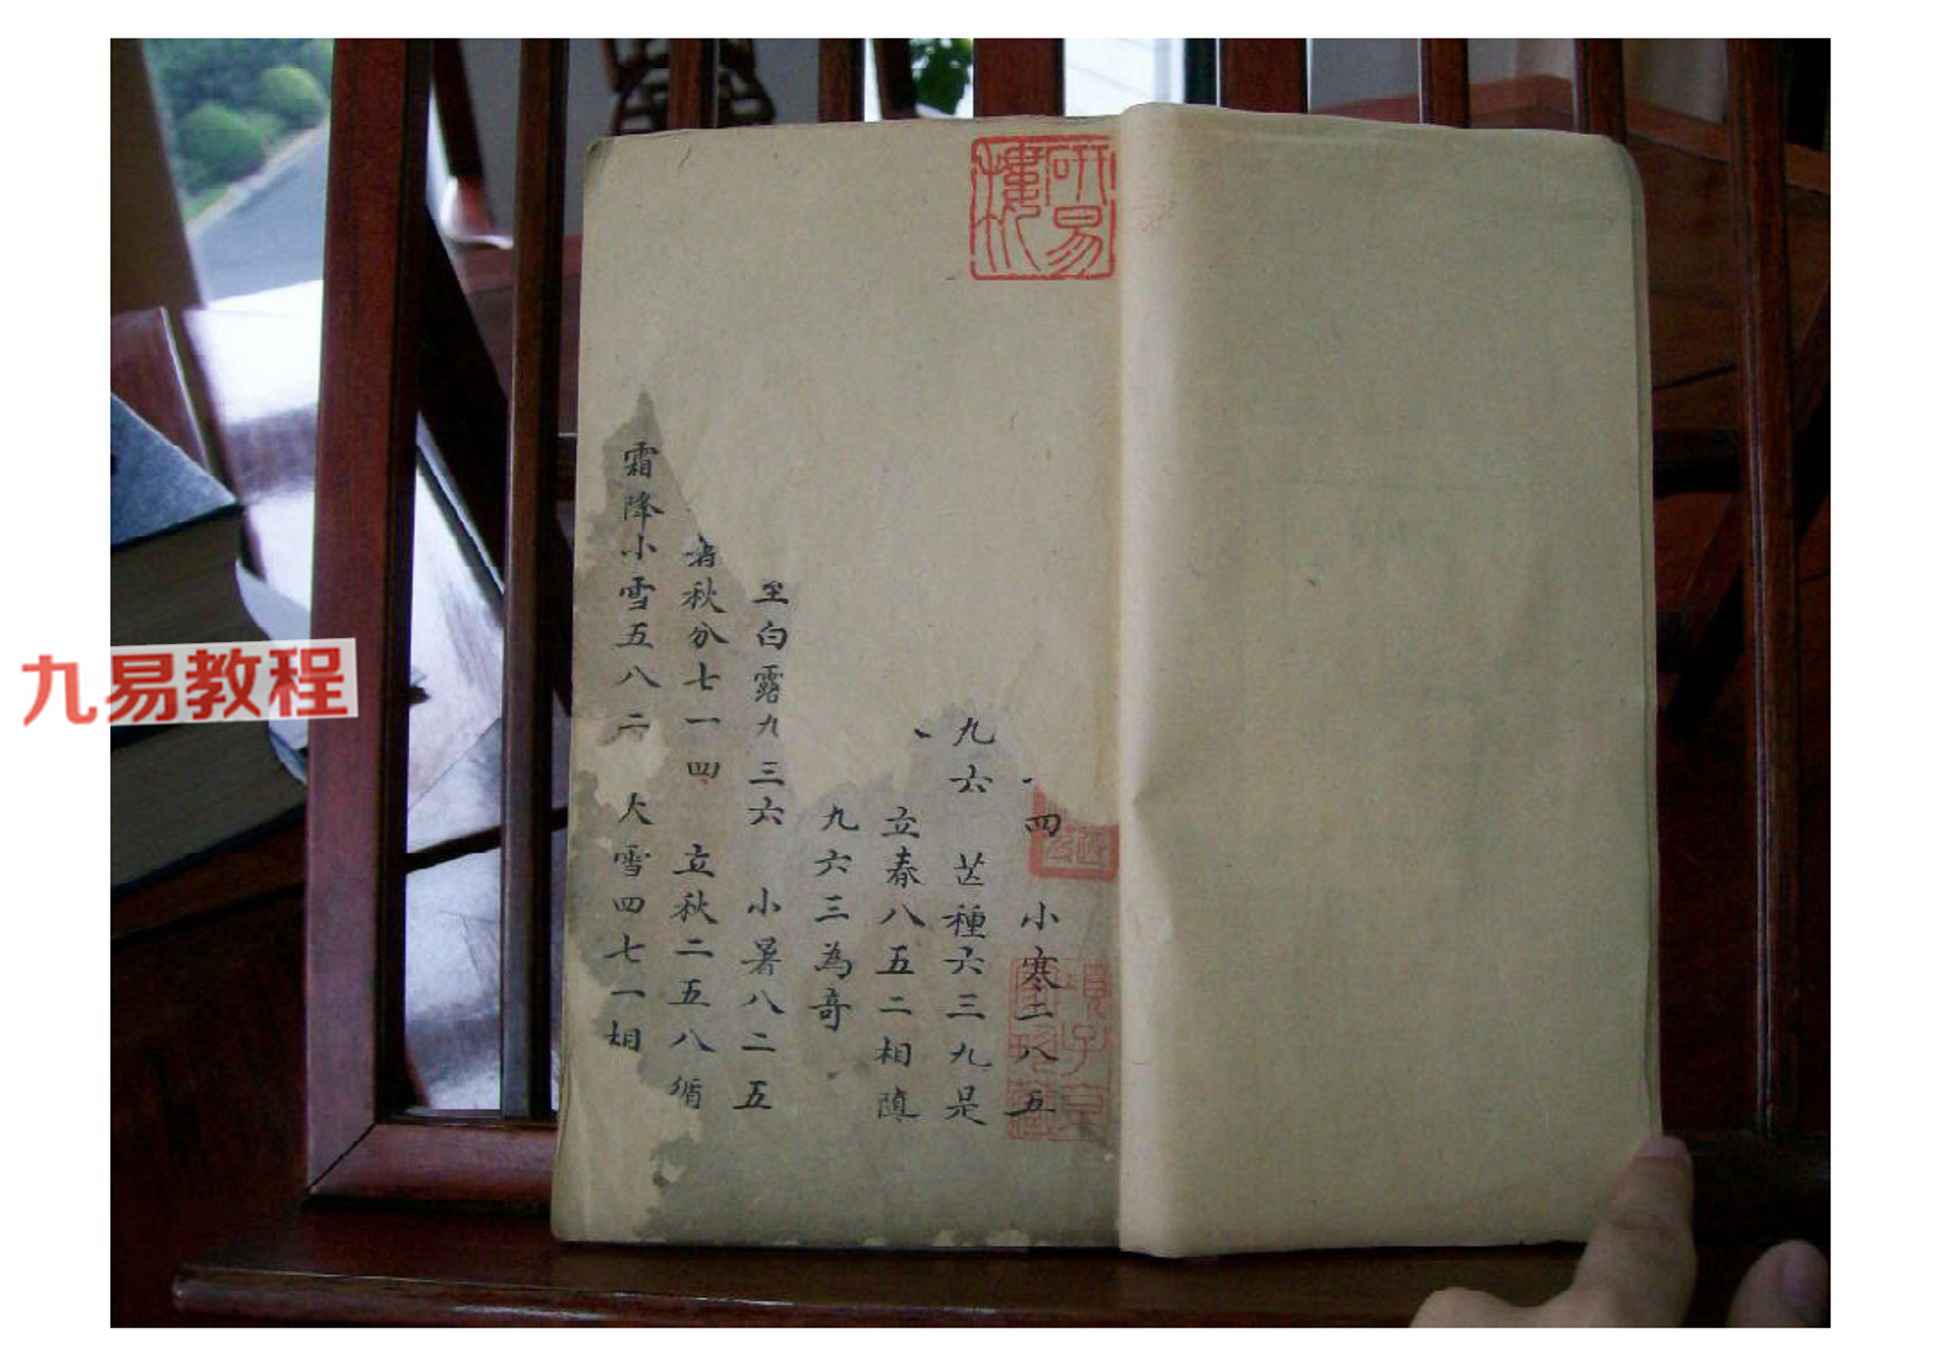 研易樓
四　小寒二八五
九六　芒種六三九是
立春八五二相隨
九六三為奇
至白露九三六　小暑八二五
秋分七一四　立秋二五八循
霜降小雪五八二　大雪四七一相
九易教程